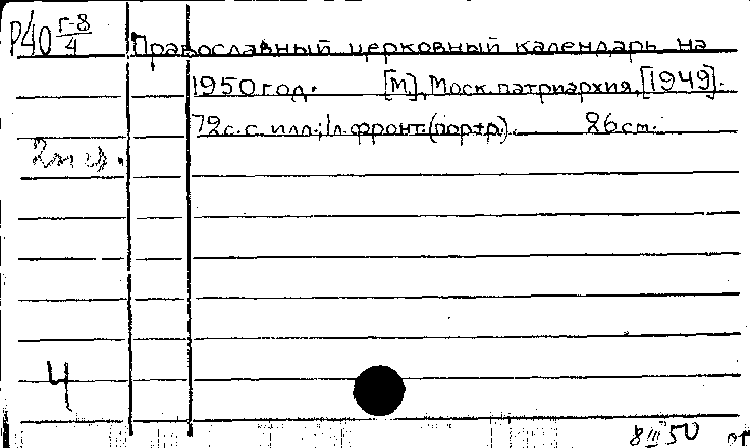 Р40 Г-8/4
Православный церковный календарь на
1950 год. [М], Моск. патриархия, [1949].
72 с. с илл.; 1 л. фронт. (портр.). 26 см.
4
8 III 50